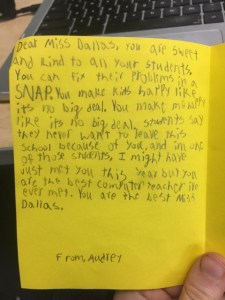 Dear Miss Dallas, You are sweet
and kind to all your students.
You can fix their problems in a
SNAP. You make kids happy like
its no big deal. You make me happy
like its no big deal, students say
they never want to leave this
school because of you, and im one
of those students, I might have
Just met you this year but you
are the best computer teacher I've
ever met. You are the best Miss
Dallas.
From, Audrey